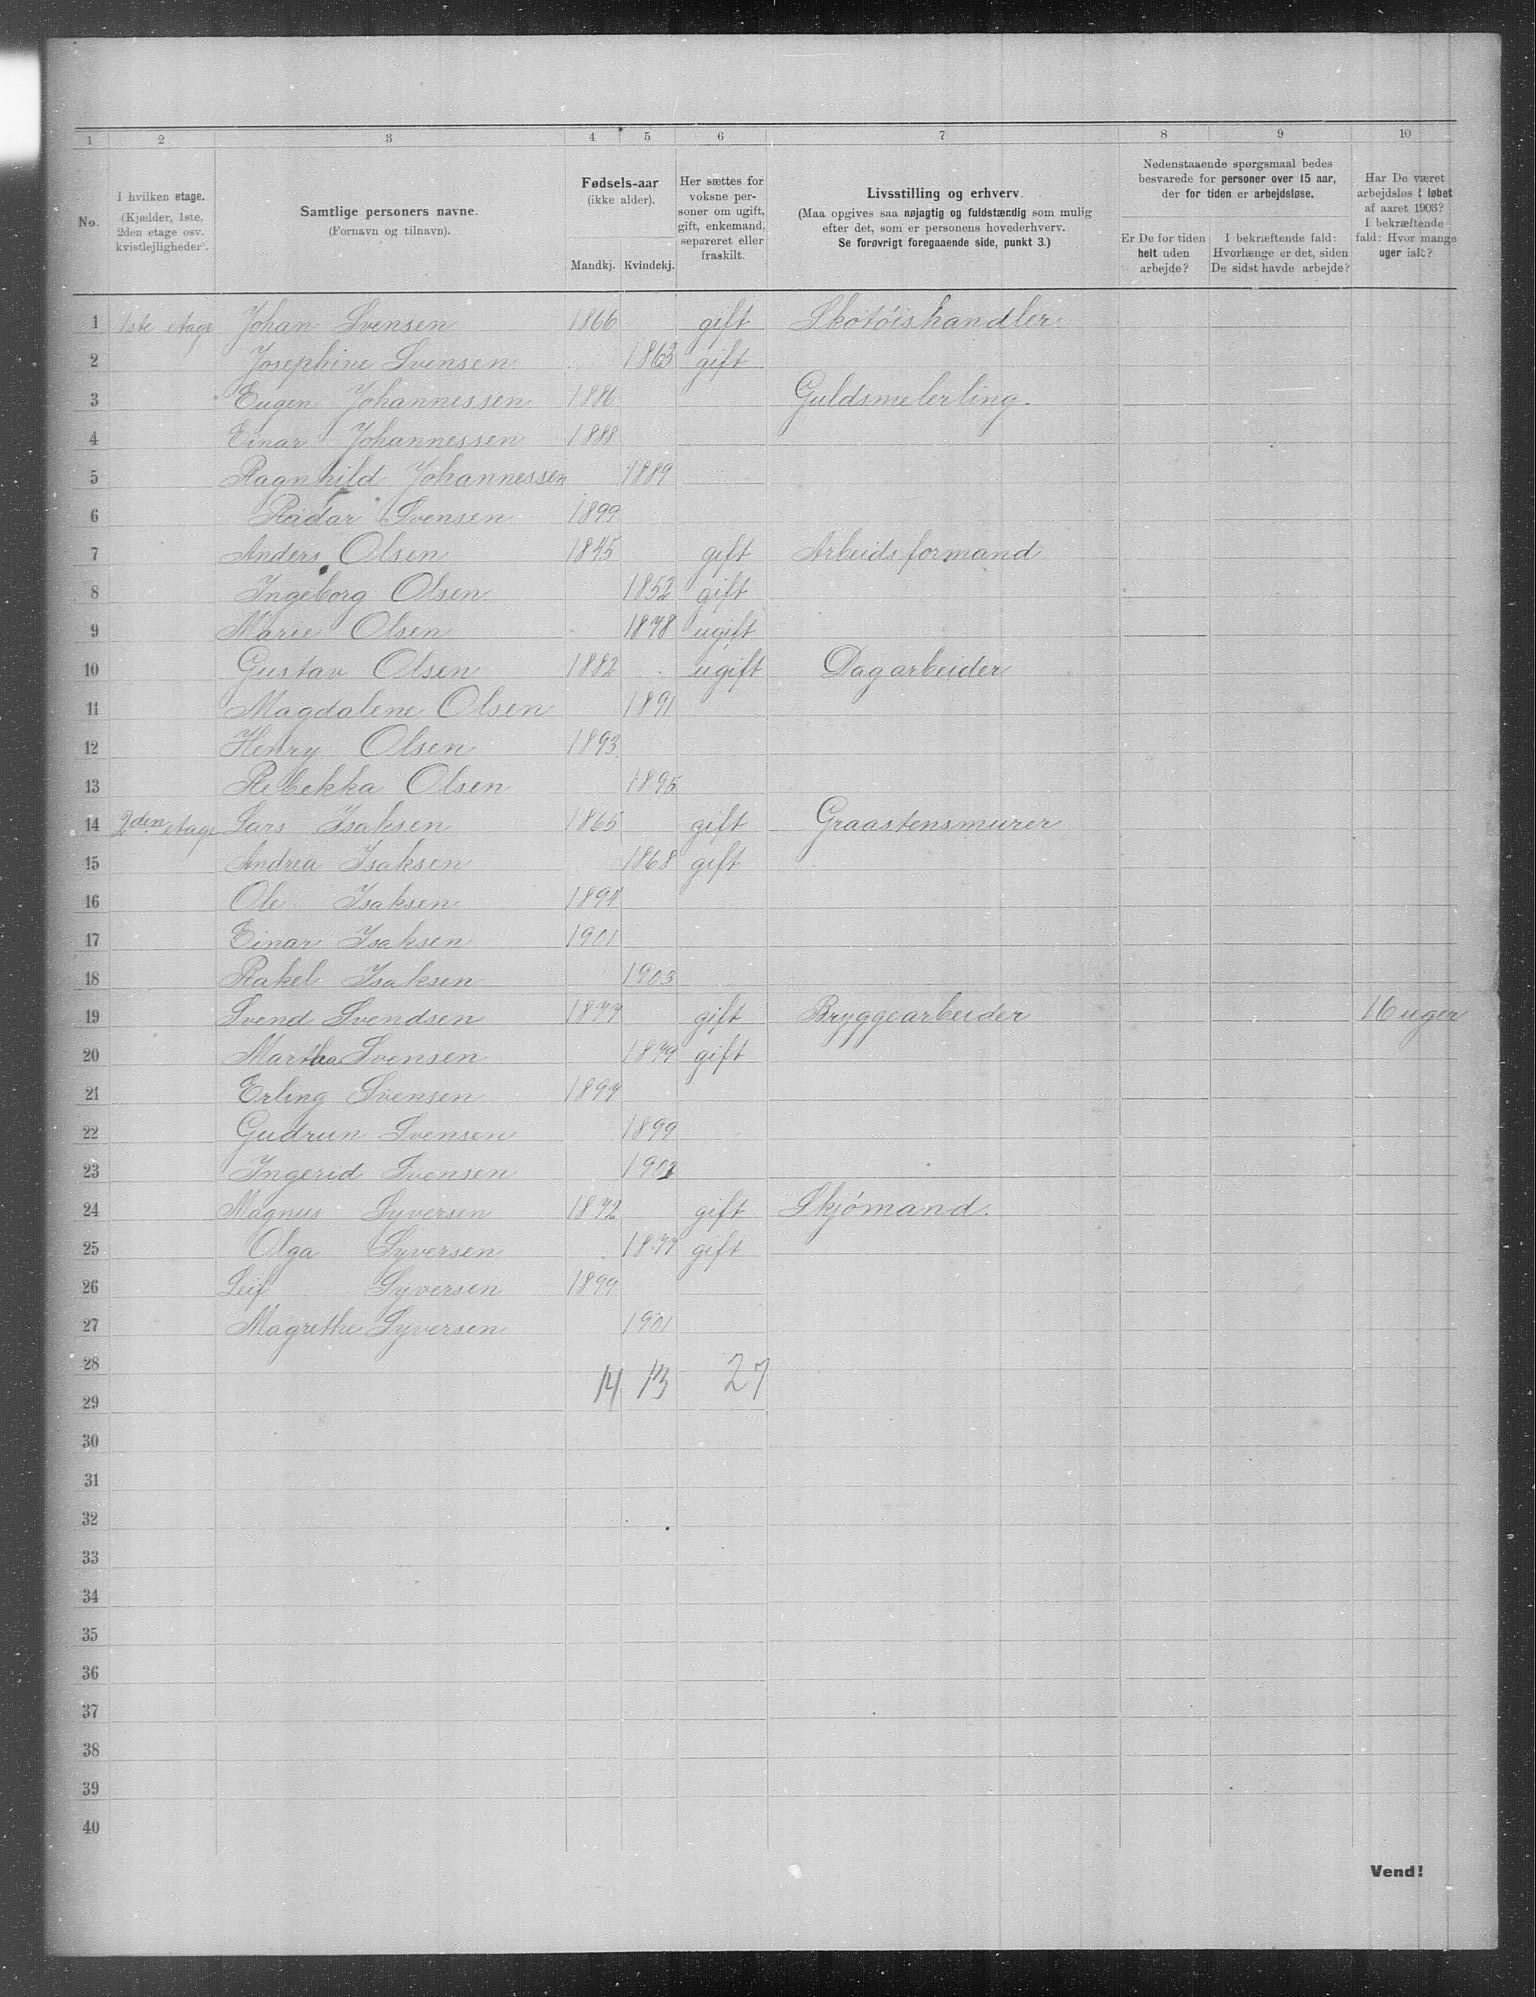 1 2 3 4 5 6 7 8 9 10
No.
I hvilken etage.
(Kjælder, 1ste,
2den etage osv.
kvistlejligheder).
Samtlige personers navne.
(Fornavn og tilnavn).
Fødsels-aar
(ikke alder).
Mandkj. Kvindekj.
Her sættes for
voksne per-
soner om ugift,
gift, enkemand,
separeret eller
fraskilt.
Livsstilling og erhverv.
(Maa opgives saa nøjagtig og fuldstændig som mulig
efter det, som er personens hovederhverv.
Se forøvrigt foregaaende side, punkt 3.)
Nedenstaaende spørgsmaal bedes
besvarede for personer over 15 aar,
der for tiden er arbejdsløse.
Er De for tiden
helt uden
arbejde?
I bekræftende fald:
Hvorlænge er det, siden
De sidst havde arbejde?
Har De været
arbejdsløs i løbet
af aaret 1903?
I bekræftende
fald: Hvor mange
uger ialt?
1 1ste etage Johan Svensen 1866 gift Skotöishandler
2 Josephine Svensen 1863 gift
3 Eugen Johannessen 1886 Guldsmelerling.
4 Einar Johannessen 1888
5 Ragnhild Johannessen 1889
6 Reidar Svensen 1899
7 Anders Olsen 1845 gift Arbeidsformand
8 Ingeborg Olsen 1852 gift
9 Marie Olsen 1878 ugift
10 Gustav Olsen 1882 ugift Dagarbeider
11 Magdalene Olsen 1891
12 Henry Olsen 1893
13 Rebekka Olsen 1895
14 2den etage Lars Isaksen 1865 gift Graastensmurer
15 Andrea Isaksen 1868 gift
16 Ole Isaksen 1894
17 Einar Isaksen 1901
18 Rakel Isaksen 1903
19 Svend Svendsen 1877 gift Bryggearbeider 16 uger
20 Martha Svensen 1879 gift
21 Erling Svensen 1897
22 Gudrun Svensen 1899
23 Ingerid Svensen 1902
24 Magnus Syversen 1872 gift Skjömand.
25 Olga Syversen 1877 gift
26 Leif Syversen 1899
27 Magrethe Syversen 1901
28 14 13 27
29
30
31
32
33
34
35
36
37
38
39
40
Vend!